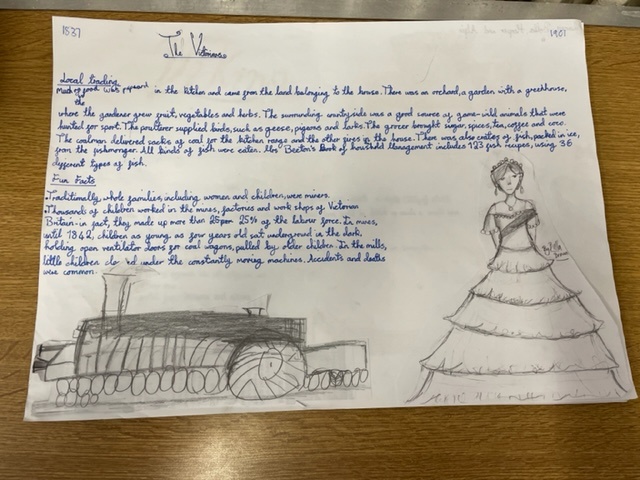 1837
1901
The Victorians
Local trading
Much of the food was prepared in the kitchen and came from the land belonging to the house. There was an orchard, a garden with a greenhouse,
where the gardener grew fruit, vegetables and herbs. The surrounding countryside was a good source of game-wild animals that were
hunted for sport. The poulterer supplied birds, such as geese, pigeons and larks. The grocer brought sugar, spices, tea, coffee and coco.
The coalman delivered sacks of coal for the kitchen range and the other fires in the house. There was also eating of fish, packed in ice,
from the fishmonger. All kinds of fish were eaten. Mrs' Beeton's Book of household Management includes 123 fish recipes, using 36
different types of fish.
Fun Facts
•Traditionally, whole families, including women and children, were miners.
•Thousands of children worked in the mines, factories and work shops of Victorian
Britain-in fact, they made up more than 25% of the labour force. In mines,
until 1842, children as young as four years old sat underground in the dark,
holding open ventilator doors for coal wagons, pulled by older children. In the mills,
little children under the constantly moving machines. Accidents and deaths
were common.
By